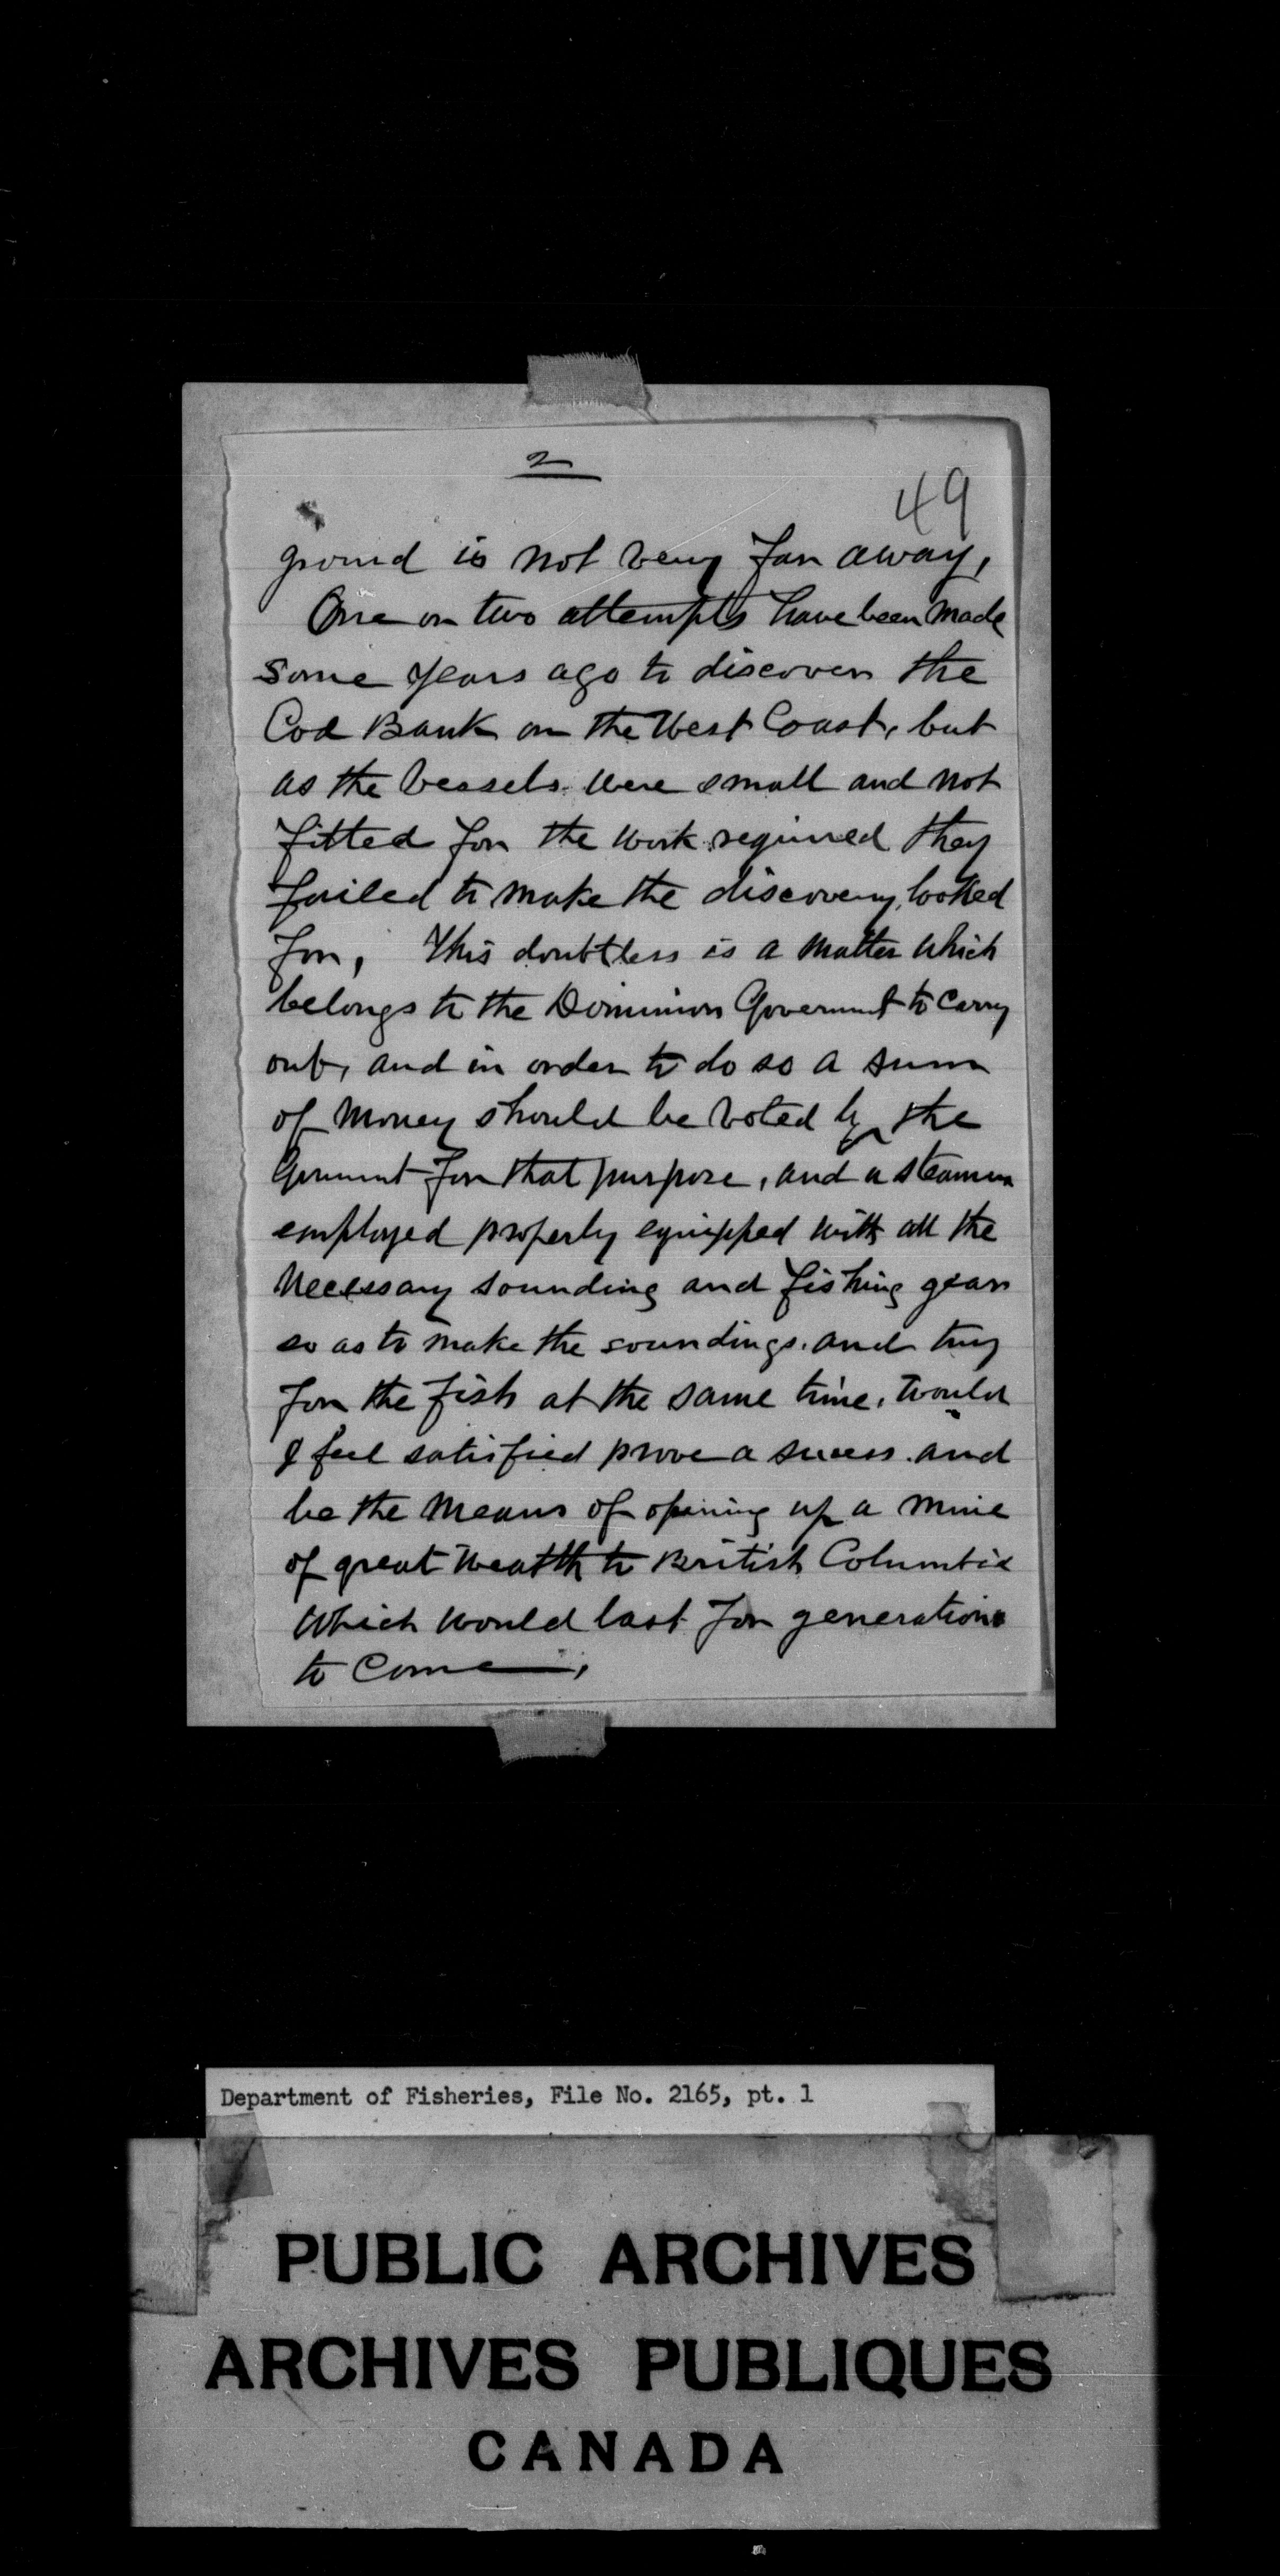 2
49
ground is not very far away,
One or two attempts have been made
some years ago to discover the
Cod Bank on the West Coast, but
as the vessels were small and not
fitted for the work required they
failed to make the discovery looked
for, This doubtless is a matter which
belongs to the Dominion Government to carry
out, and in order to do so a sum
of money should be voted by the
Government for that purpose, and a steamer
employed properly equipped with all the
necessary sounding and fishing gear
so as to make the soundings and try
for the fish at the same time, would
I feel satisfied prove a success and
be the means of opening up a mine
of great wealth to British Columbia
which would last for generations
to come,
Department of Fisheries, File No. 2165, pt. 1
PUBLIC ARCHIVES
ARCHIVES PUBLIQUES
CANADA